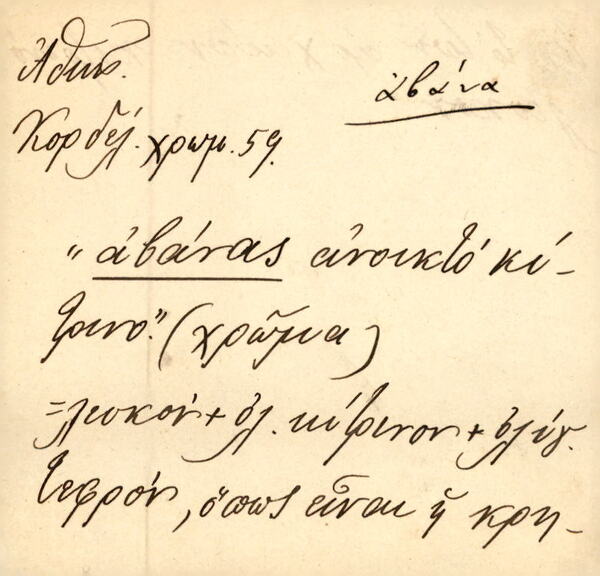 Ἀθῆν.
ἀβάνα
Κορδέλ. χρωμ. 59.
"ἀβάνας ἀνοικτό κί-
τρινο". (χρῶμα)
=λευκόν + ὀλ. κίτρινον + ὀλίγ.
τεφρόν, ὅπως εἶναι ἡ κρη-